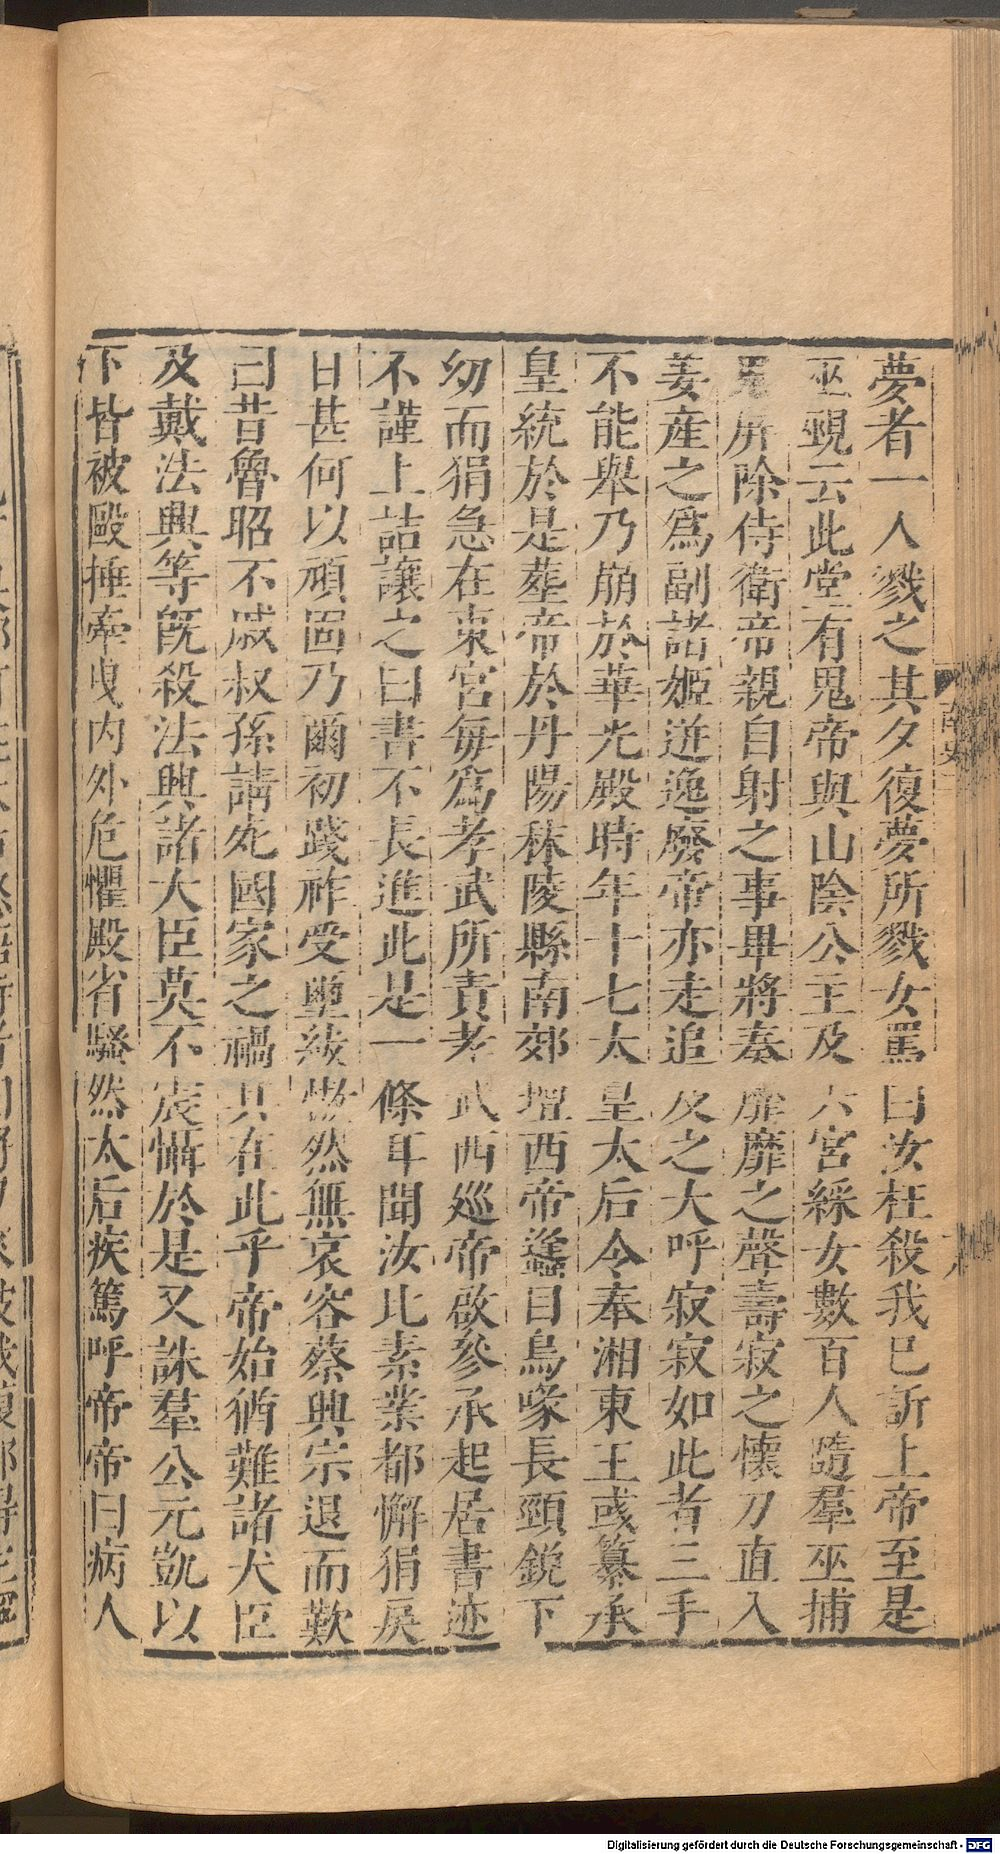 夢者一人戮之其夕復夢所戮女罵曰汝枉殺我已訴上帝至是
巫覡云此堂有鬼帝與山陰公主及六宮綵女數百人隨羣巫捕
鬼屏除侍衛帝親自射之事畢將奏靡靡之聲壽寂之懷刀直入
姜産之爲副諸姬迸逸廢帝亦走追及之大呼寂寂如此者三手
不能舉乃崩於華光殿時年十七太皇太后令奉湘東王彧纂承
皇統於是葬帝於丹陽秣陵縣南郊壇西帝蠭目鳥喙長頸銳下
幼而狷急在東宮每爲孝武所責孝武西巡帝啟參承起居書迹
不謹上詰讓之曰書不長進此是一條耳聞汝比素業都懈狷戾
日甚何以頑固乃爾初踐祚受璽紱慠然無哀容蔡興宗退而歎
曰昔魯昭不戚叔孫請死國家之禍其在此乎帝始猶難諸大臣
及戴法興等旣殺法興諸大臣莫不震慴於是又誅羣公元凱以
下皆被毆捶牽曳內外危懼殿省騷然太后疾篤呼帝帝曰病人
南史二
Digitalisierung gefördert durch die Deutsche Forschungsgemeinschaft - DFG